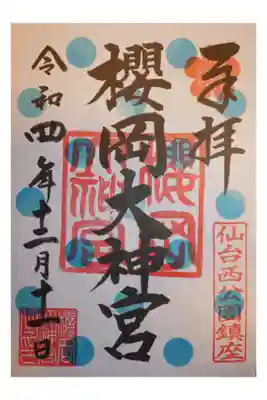 奉拝
櫻岡大神宮
仙台西公園鎮座
令和四年十二月十一日
櫻岡大神宮